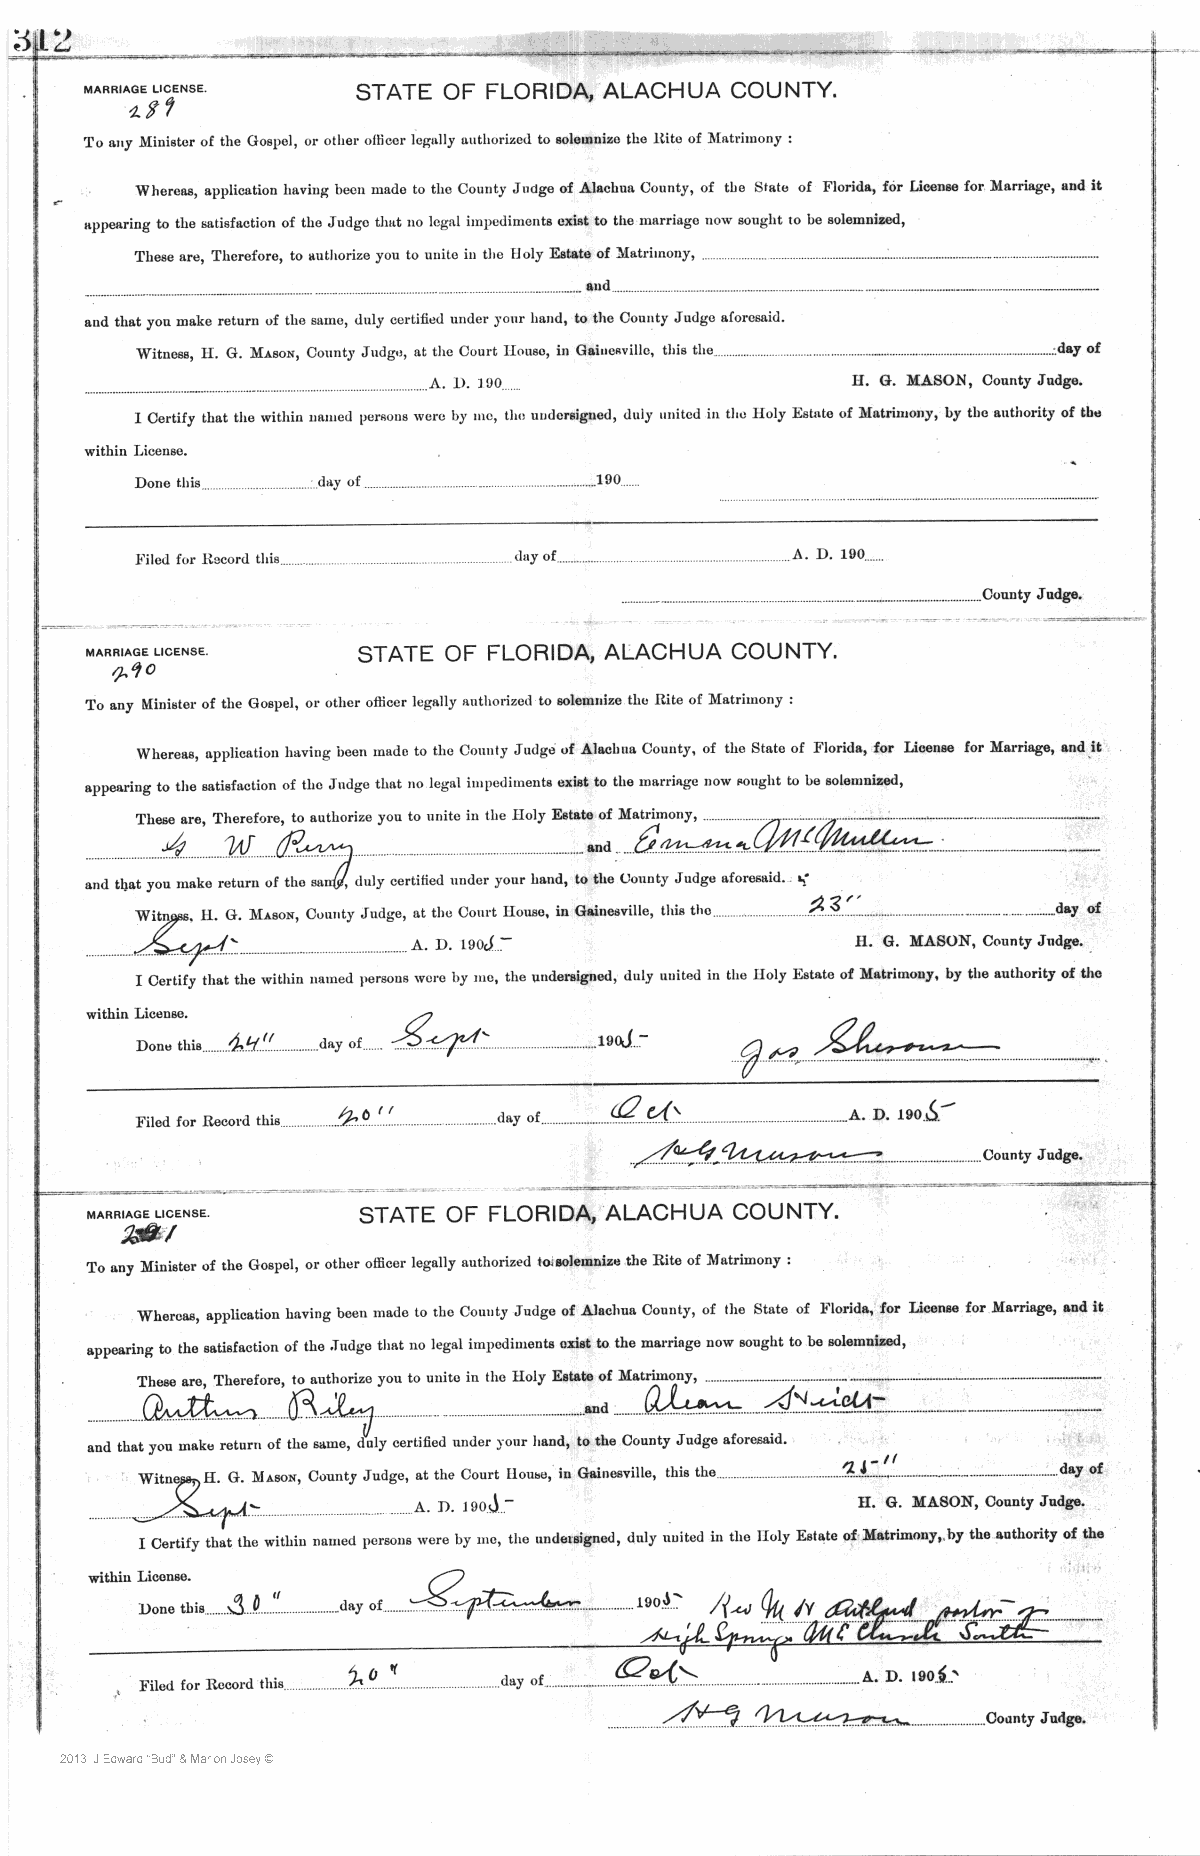 312
MARRIAGE LICENSE. STATE OF FLORIDA, ALACHUA COUNTY.
289
To any Minister of the Gospel, or other officer legally authorized to solemnize the Rite of Matrimony :
Whereas, application having been made to the County Judge of Alachua County, of the State of Florida, for License for Marriage, and it
appearing to the satisfaction of the Judge that no legal impediments exist to the marriage now sought to be solemnized,
These are, Therefore, to authorize you to unite in the Holy Estate of Matrimony,
and
and that you make return of the same, duly certified under your hand, to the County Judge aforesaid.
Witness, H. G. MASON, County Judge, at the Court House, in Gainesville, this the day of
A. D. 190 H. G. MASON, County Judge.
I Certify that the within named persons were by me, the undersigned, duly united in the Holy Estate of Matrimony, by the authority of the
within License.
Done this day of 190
Filed for Record this day of A. D. 190
County Judge.
MARRIAGE LICENSE. STATE OF FLORIDA, ALACHUA COUNTY.
290
To any Minister of the Gospel, or other officer legally authorized to solemnize the Rite of Matrimony :
Whereas, application having been made to the County Judge of Alachua County, of the State of Florida, for License for Marriage, and it
appearing to the satisfaction of the Judge that no legal impediments exist to the marriage now sought to be solemnized,
These are, Therefore, to authorize you to unite in the Holy Estate of Matrimony,
W Perry and Emma McMullen
and that you make return of the same, duly certified under your hand, to the County Judge aforesaid.
Witness, H. G. MASON, County Judge, at the Court House, in Gainesville, this the 23" day of
Sept A. D. 1905 H. G. MASON, County Judge.
I Certify that the within named persons were by me, the undersigned, duly united in the Holy Estate of Matrimony, by the authority of the
within License.
Done this 24" day of Sept 1905 Jas. Sherouse
Filed for Record this 20" day of Oct A. D. 1905
H.G. Mason County Judge.
MARRIAGE LICENSE. STATE OF FLORIDA, ALACHUA COUNTY.
291
To any Minister of the Gospel, or other officer legally authorized to solemnize the Rite of Matrimony :
Whereas, application having been made to the County Judge of Alachua County, of the State of Florida, for License for Marriage, and it
appearing to the satisfaction of the Judge that no legal impediments exist to the marriage now sought to be solemnized,
These are, Therefore, to authorize you to unite in the Holy Estate of Matrimony,
Arthur Riley and Alean Heidt
and that you make return of the same, duly certified under your hand, to the County Judge aforesaid.
Witness, H. G. MASON, County Judge, at the Court House, in Gainesville, this the 25" day of
Sept A. D. 1905 H. G. MASON, County Judge.
I Certify that the within named persons were by me, the undersigned, duly united in the Holy Estate of Matrimony, by the authority of the
within License.
Done this 30" day of September 1905 Rev M H pastor of
High Springs ME Church South
Filed for Record this 20" day of Oct A. D. 1905
H G Mason County Judge.
2013 J Edward "Bud" & Marion Josey ©